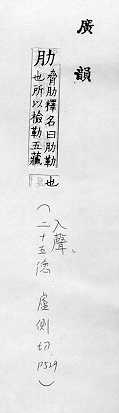 廣韻
肋
脅肋釋名曰肋勒
也所以檢勒五藏
也
(入聲、
二十五德 盧側切 P529)